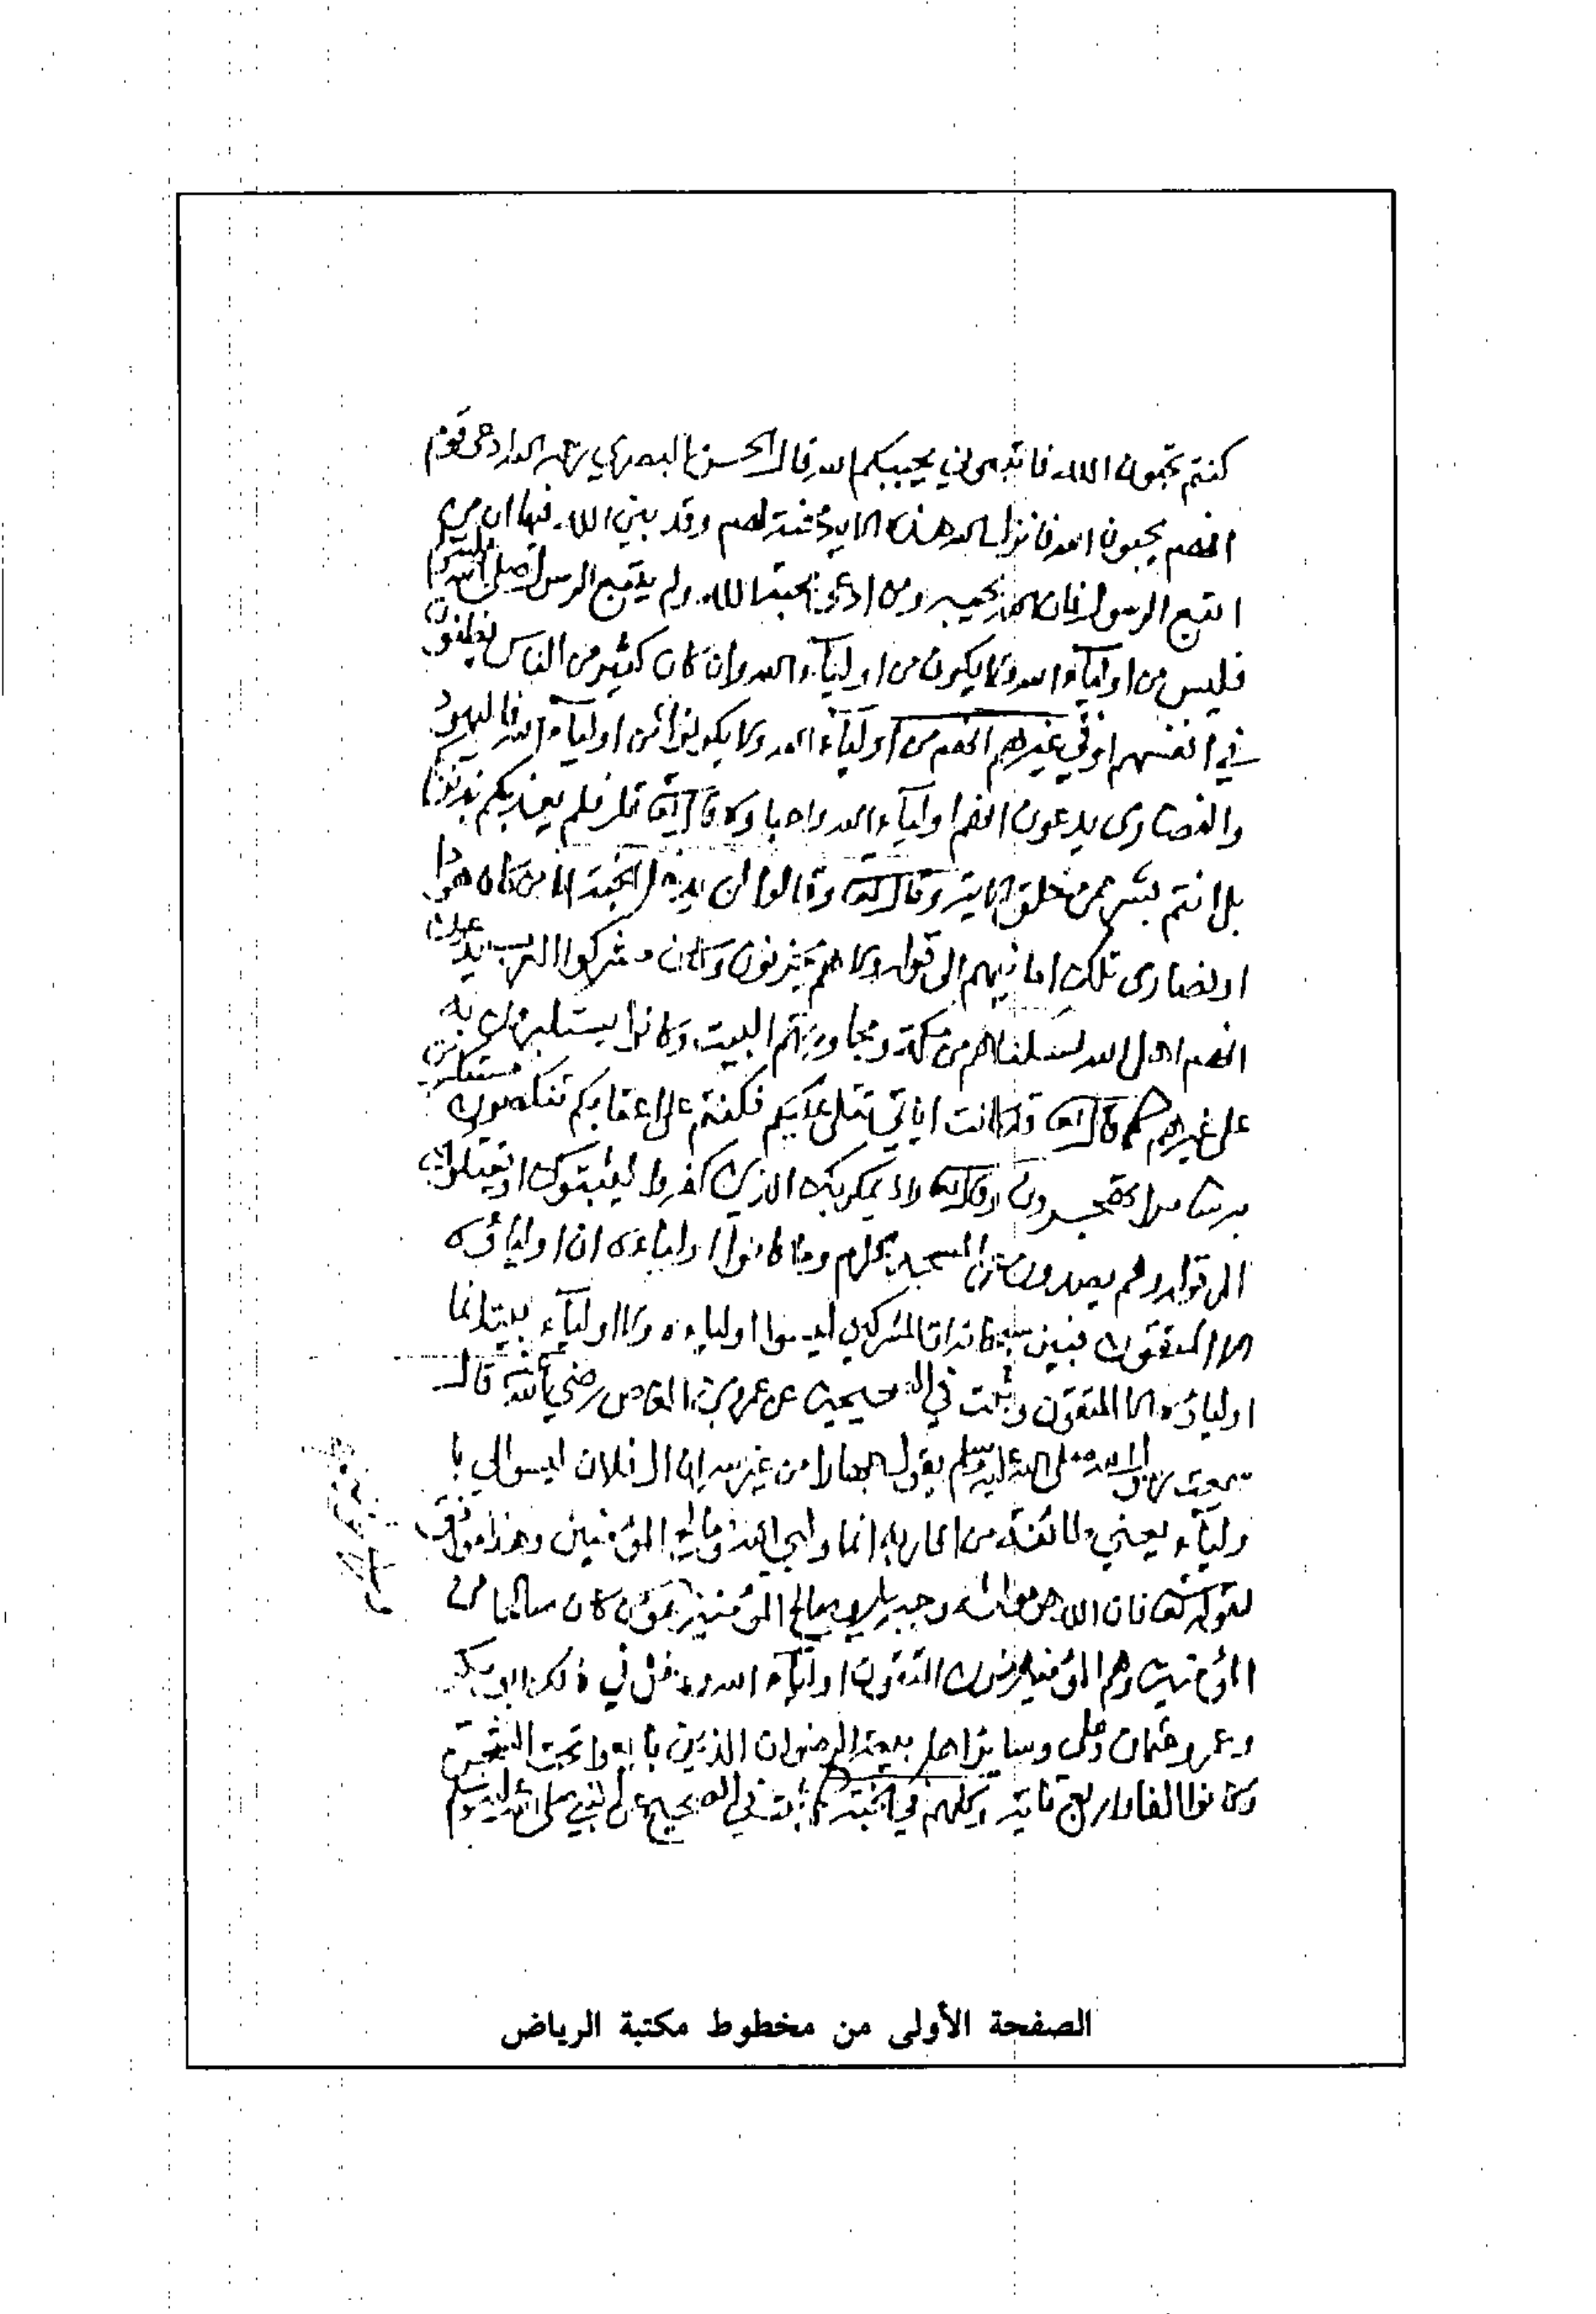 كنتم تحبون الله فاتبعوني يحببكم الله قال الحسن البصري رحمه الله ادعى قوم
انهم يحبون الله فانزل الله هذه الاية محنة لهم وقد بين الله فيها ان من
اتبع الرسول فان الله يحبه ومن ادعى محبة الله ولم يتبع الرسول صلى الله عليه وسلم
فليس من اولياء الله ولا يكون من اولياء الله وان كان كثير من الناس يظنون
في انفسهم او في غيرهم انهم من اولياء الله ولا يكونوا من اولياء الله فاليهود
والنصارى يدعون انهم اولياء الله واحباوه قال تعالى قل فلم يعذبكم بذنوبكم
بل انتم بشر ممن خلق الاية وقال تعالى وقالوا لن يدخل الجنة الا من كان هودا
او نصارى تلك امانيهم الى قوله ولا هم يحزنون وكان مشركوا العرب يدعون
انهم اهل الله لسكناهم من مكة ومجاورتهم البيت وكانوا يستكبرون به
على غيرهم كما قال تعالى قد كانت اياتي تتلى عليكم فكنتم على اعقابكم تنكصون مستكبرين
به سامرا تهجرون وقال تعالى واذ يمكر بك الذين كفروا ليثبتوك او يقتلوك
الى قوله وهم يصدون عن المسجد الحرام وما كانوا اولياءه ان اولياؤه
الا المتقون فبين سبحانه ان المشركين ليسوا اولياءه ولا اولياء بيته انما
اولياؤه الا المتقون وثبت في الصحيحين عن عمرو بن العاص رضي الله قال
سمعت رسول الله صلى الله عليه وسلم يقول جهارا من غير سر ان ال فلان ليسوا لي با
ولياء يعني طائفة من اقاربه انما وليي الله وصالح المؤمنين وهذا موافق
لقوله تعالى فان الله هو مولاه وجبريل وصالح المؤمنين هو من كان صالحا من
المؤمنين وهم المؤمنون المتقون اولياء الله ودخل في ذلك ابو بكر
وعمر وعثمان وعلي وسائر اهل بيعة الرضوان الذين بايعوا تحت الشجرة
وكانوا الفا واربع مائة وكلهم في الجنة كما ثبت في الصحيح عن النبي صلى الله عليه وسلم
الصفحة الأولى من مخطوط مكتبة الرياض